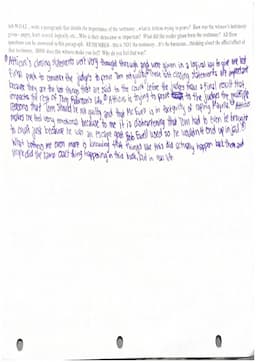 SO WHAT... write a paragraph that details the importance of the testimony... what is Atticus trying to prove? How was the witness's testimony
given - angry, hurt, scared, logically, etc... Why is their demeanor so important? What did the reader glean from the testimony? All these
questions can be answered in this paragraph. REMEMBER - this is NOT the testimony. It's the focus on... thinking about the affect/effect of
that testimony. HOW does this witness make you feel? Why do you feel that way?
Atticus's closing statements were very thought through and were given in a logical way to give one last
final push to convince the judge's to prove Tom not guilty. These last closing statements are important
because they are the last things that are said to the court before the judges make a final result that
impacts the rest of Tom Robinson's life. Atticus is trying to prove to the judges the multiple
reasons that Tom should be not guilty and that Mr. Ewell is in fact guilty of raping Mayella. Atticus
makes me feel very emotional because to me it is disheartening that Tom had to even be brought
to court just because he was an escape goat Bob Ewell used so he wouldn't end up in jail.
What bothers me even more is knowing that things like this did actually happen back then and
people did the same exact thing happening in this book, but in real life.